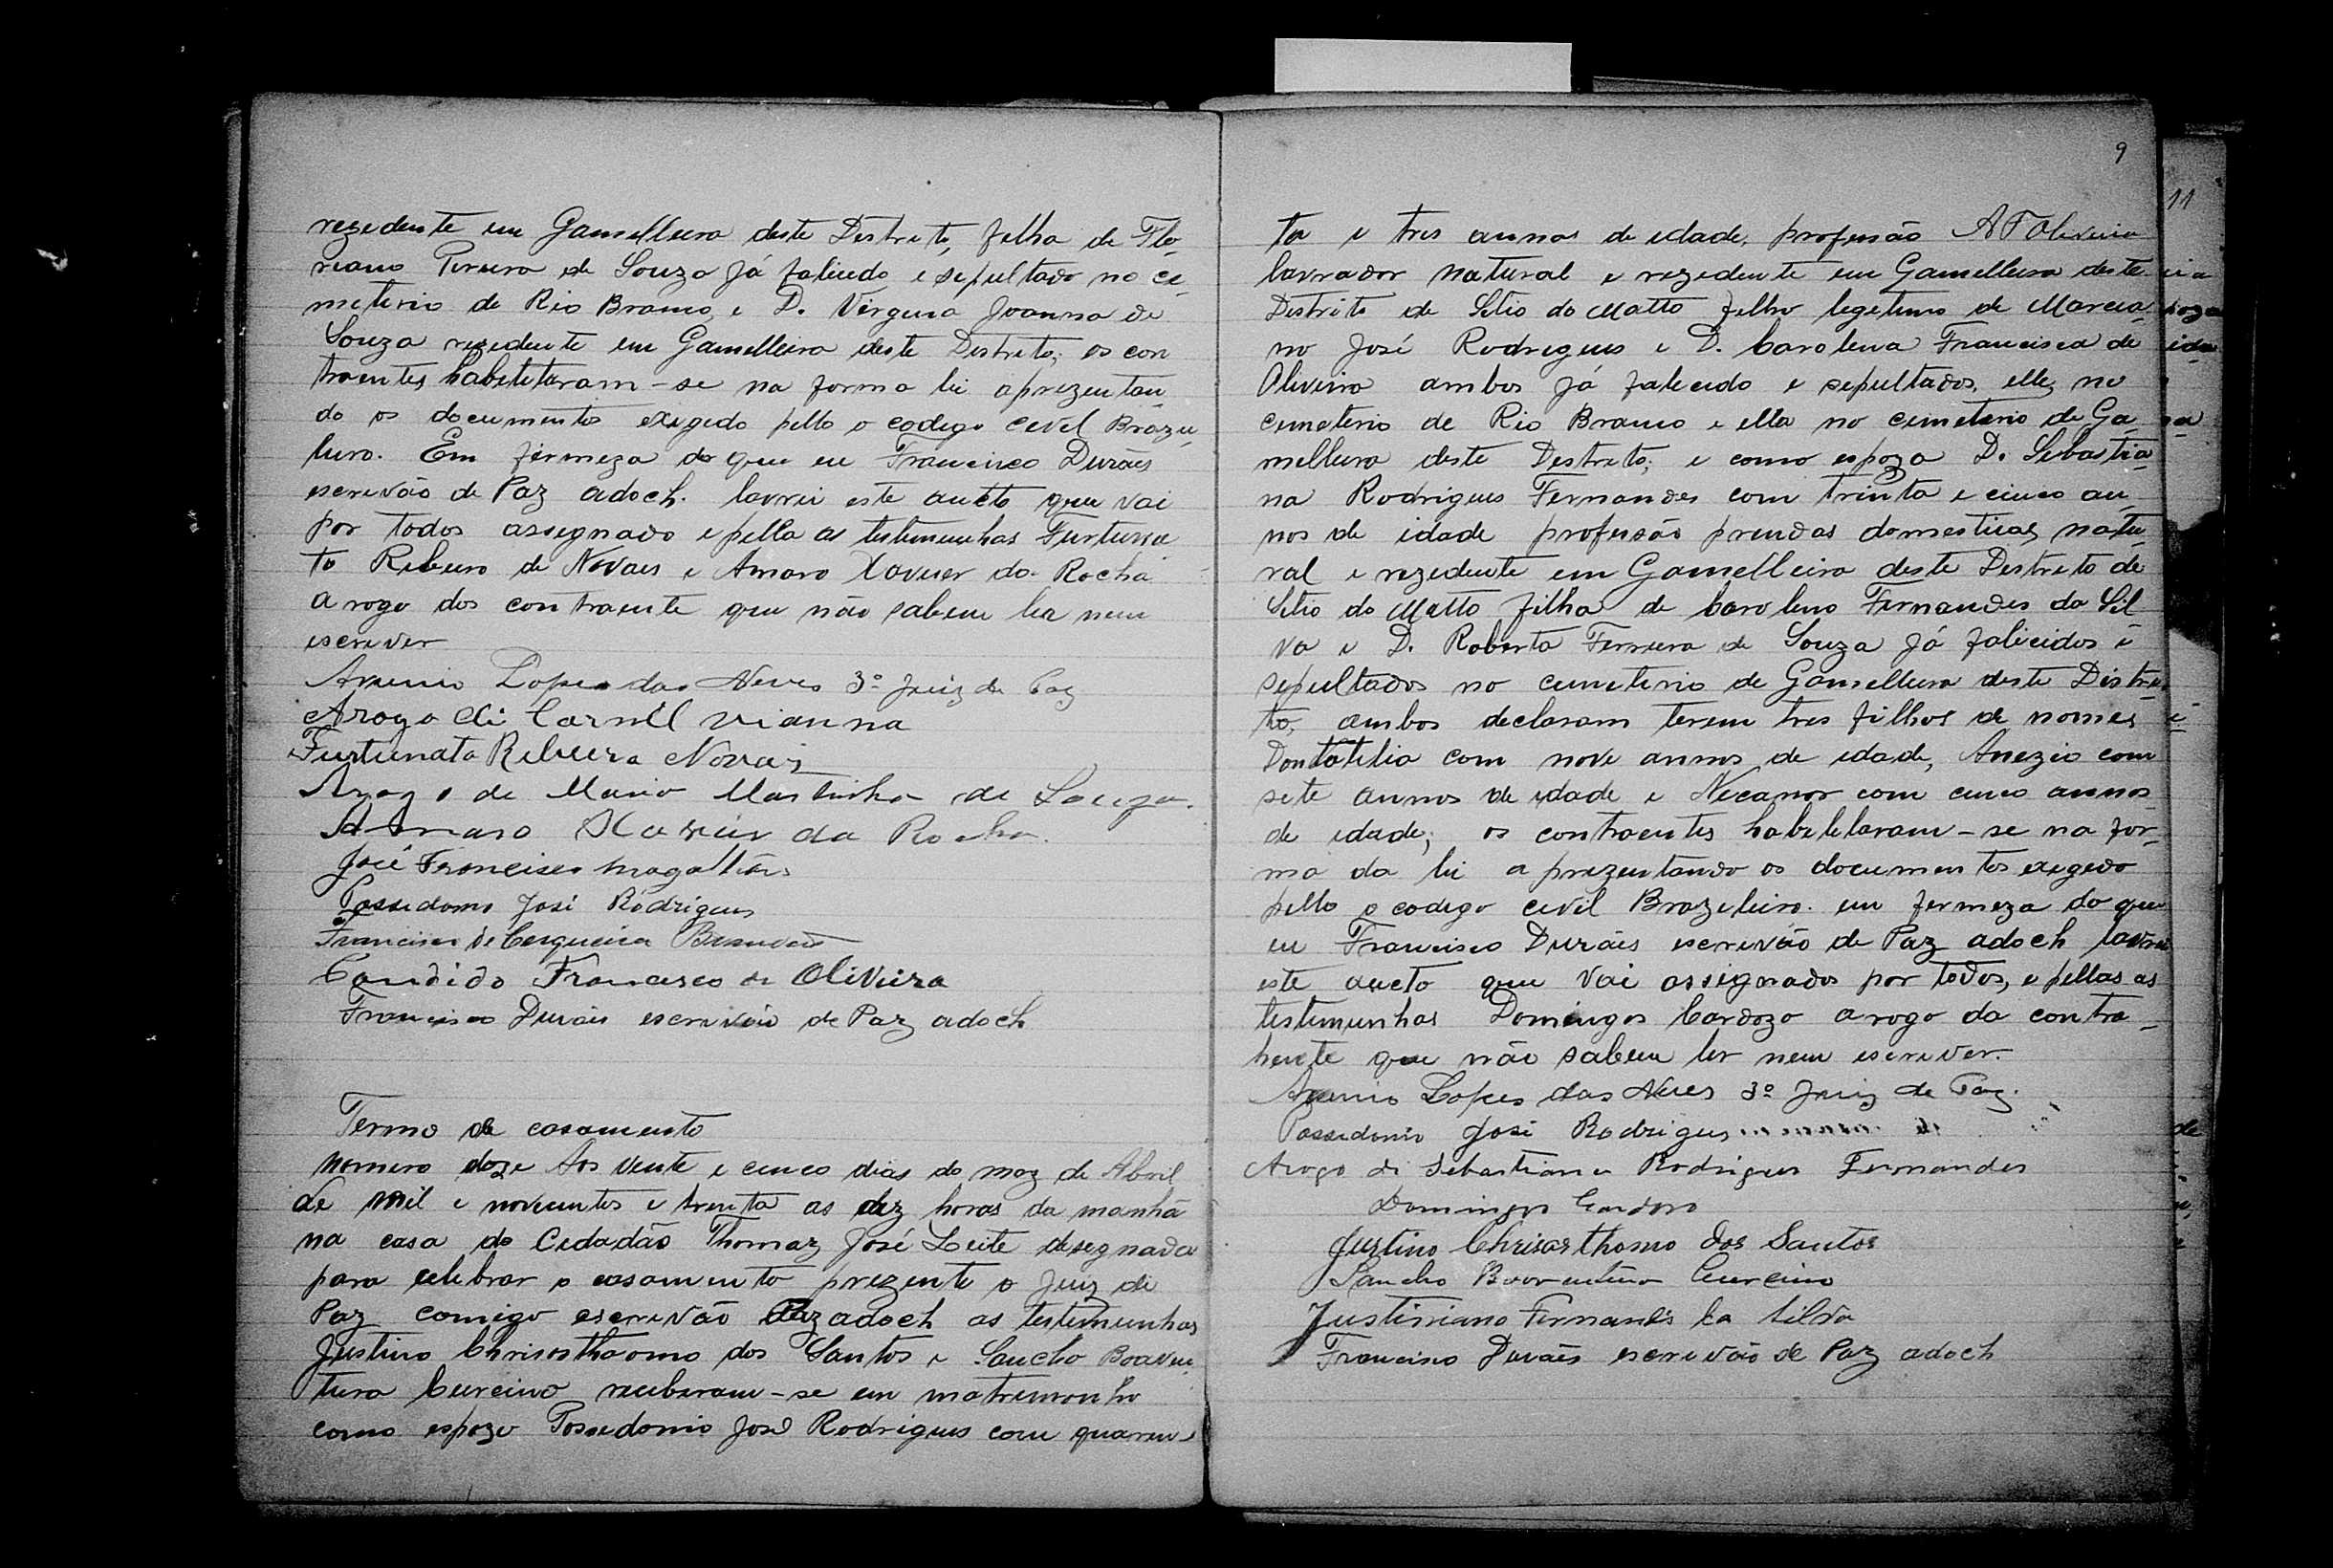 rezedente em Gamelleira deste Destreto, filha de Flo-
riano Pereira de Souza já falicido e sepultado no ce-
meterio de Rio Branco, e D. Virgena Joanna de
Souza rezedente em Gamelleira deste Destreto; os con
traentes habeletaram-se na forma lei aprezentan-
do os documentos exegedo pello o codego cevel Braze-
leiro. Em fermeza do que eu Francisco Durães
escrevão de Paz adoch. lavrei este aucto que vai
por todos assegnado e pella as testemunhas Furtuna
to Rebeiro de Novaes e Amaro Xavier da Rocha
arogo dos contraente que não sabem ler nem
escrever
Arsenio Lopes das Neves 3º Juiz de Paz
Arogo di Carmél vianna
Furtunato Ribeiro Novais
Arogo de Maria Martinha de Souza.
Amaro Xavier da Rocha.
José Francisco Magalhães
Possedonio José Rodrigues
Francisco de Cerqueira
Candido Francisco de Oliveira
Francisco Durães escrevão de Paz adoch
Termo de casamento
Numero doze Aos vente e cenco dias do mez de Abril
de mil e noveentos e trenta as dez horas da manhã
na casa do Cedadão Thomaz José Leite desegnada
para celebrar o casamento prezente o Juiz de
Paz comigo escrevão Paz adoch as testemunhas
Justino Chrisosthomo dos Santos e Sancho Boaven-
tura Curcino receberam-se em matremonho
como espozo Possedonio José Rodrigues com quaren-
9
11
ta e tres annos de edade, profissão A F Oliveira
lavrador natural e rezedente em Gamelleira deste
Destreto de Sitio do Matto filho legetimo de Marcia-
no José Rodrigues e D. Carolena Francisca de
Oliveira ambos já falecido e sepultados, elle, no
cemeterio de Rio Branco e ella no cemeterio de Ga-
melleira deste Destreto; e como espoza D. Sebastia-
na Rodrigues Fernandes com trinta e cinco an-
nos de idade profissão prendas domesticas, natu-
ral e rezedente em Gamelleira deste Destreto de
Sitio do Matto filha de Caroleno Fernandes da Sil-
va e D. Roberta Ferreira de Souza já falicidos e
sepultados no cemeterio de Gamelleira deste Distre-
to, ambos declaram terem tres filhos de nomes
Dontatilia com nove annos de edade, Anezio com
sete annos de edade e Necanor com cenco annos
de edade; os contraentes habeletaram-se na for-
ma da lei aprezentando os documentos exegedo
pello o codego cevil Brazeleiro. em fermeza do que
eu Francisco Durães escrevão de Paz adoch lavrei
este aucto que vai assignados por todos, e pellas as
testemunhas Domingos Cardozo arogo da contra-
hente que não sabem ler nem escrever.
Arsenio Lopes das Neves 3º Juiz de Paz.
Possedonio José Rodrigues
Arogo di Sebastiana Rodrigues Fernandes
Domingos Cardoso
Justino Chrisosthomo dos Santos
Sancho Boaventura Curcino
Justiniano Fernandes da Silva
Francisco Durães escrevão de Paz adoch